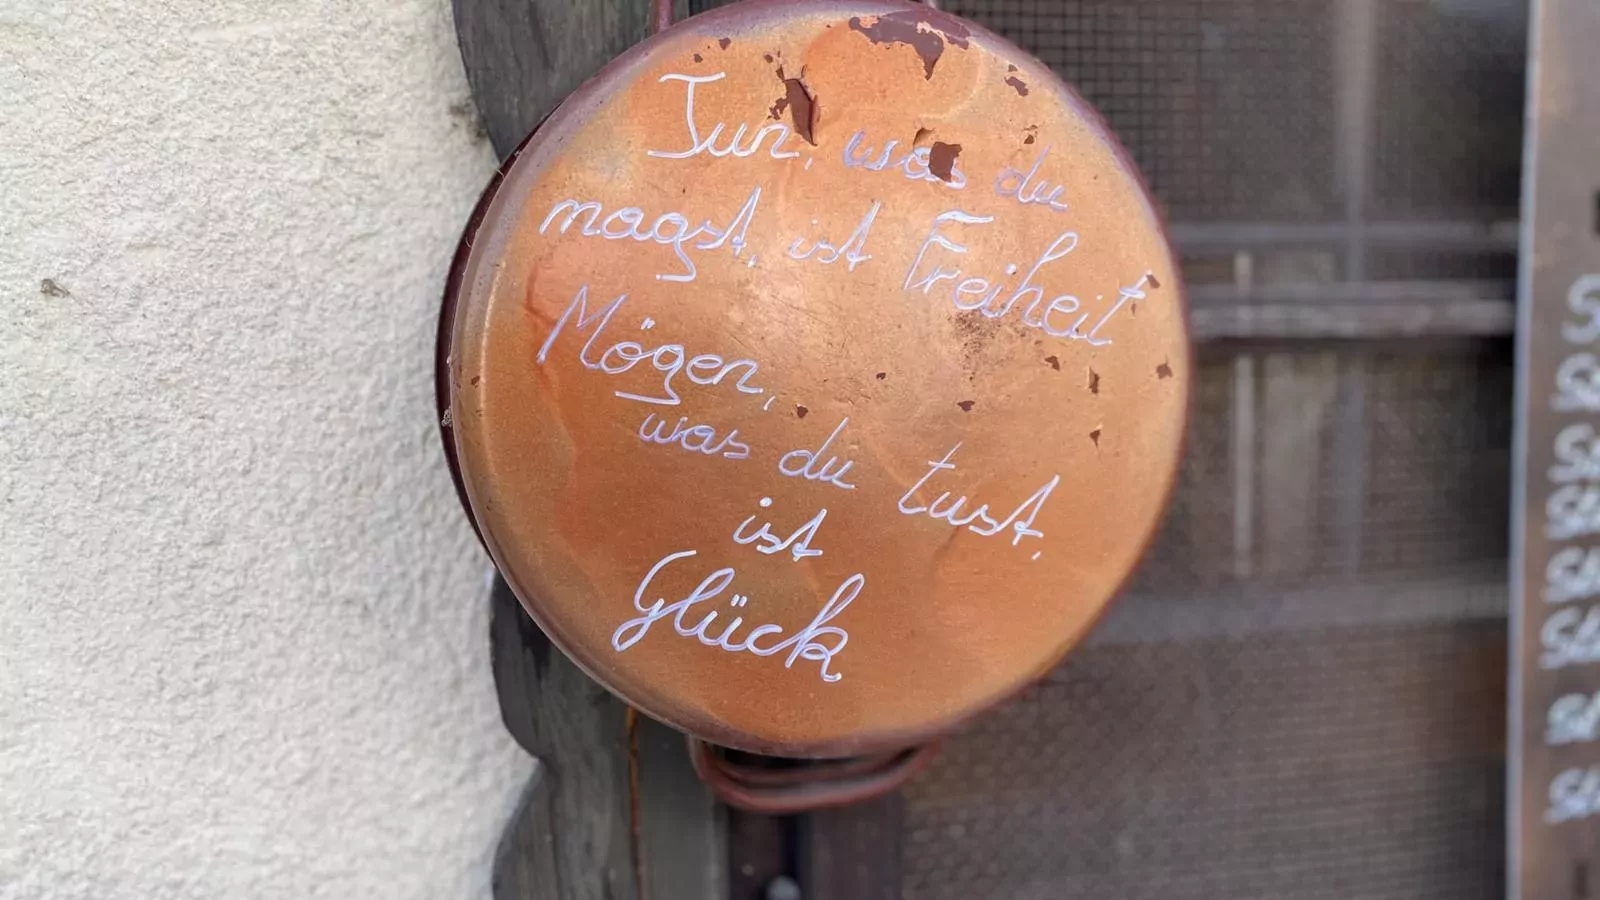 Tun, was du
magst, ist Freiheit
Mögen,
was du tust,
ist
Glück